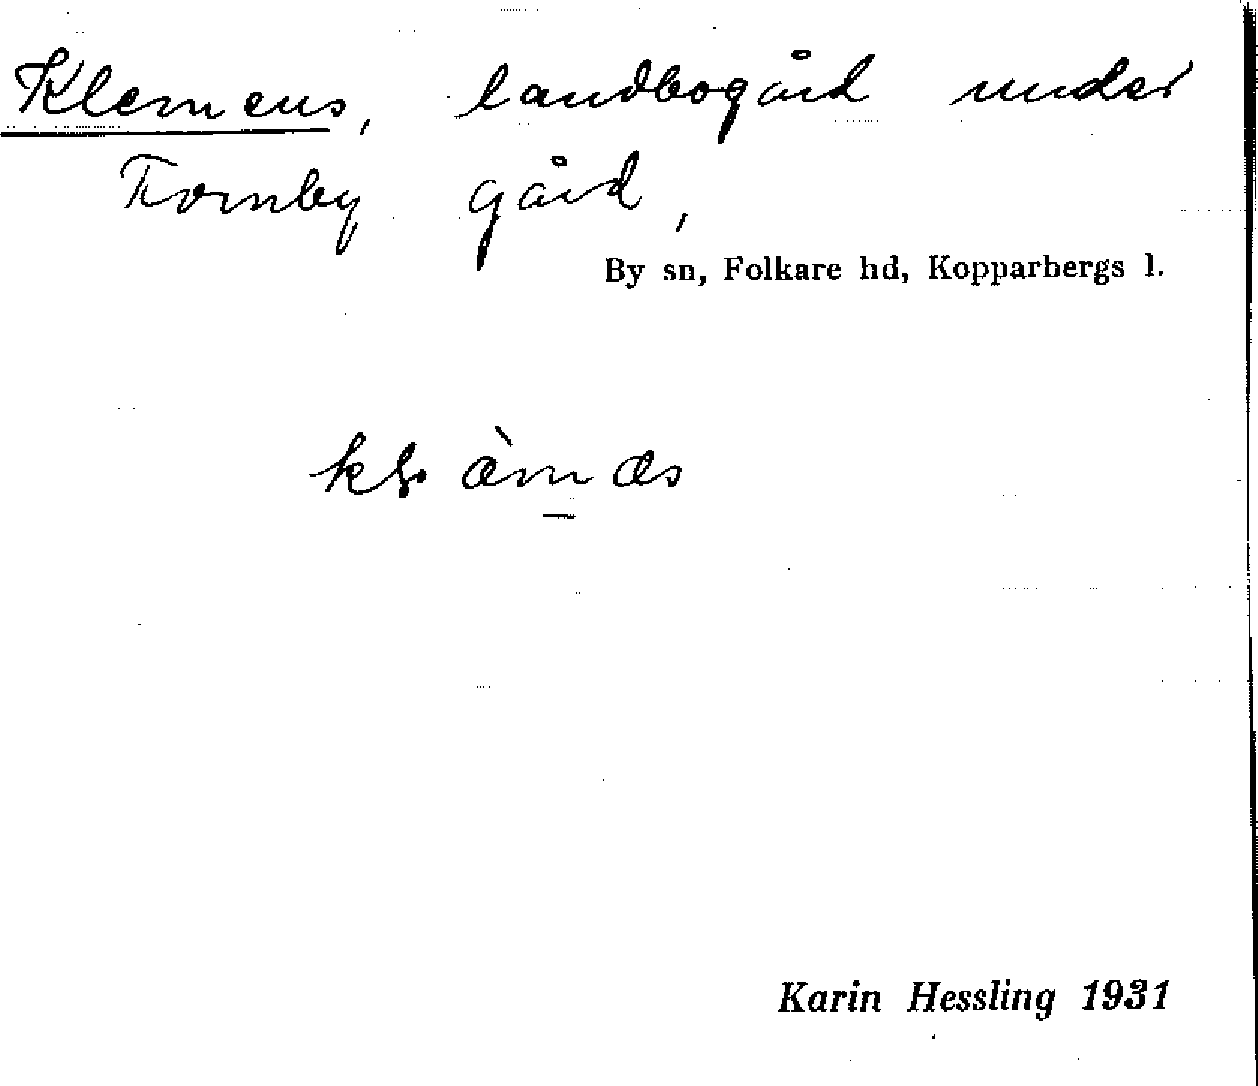 Klemens, landbogård under
Fornby gård,
By sn, Folkare hd, Kopparbergs l.
Karin Hessling 1931